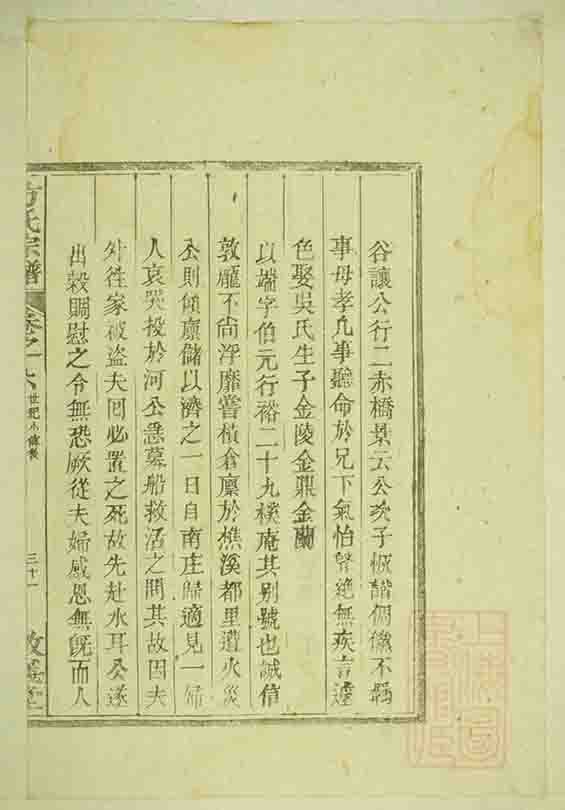 谷讓公行二赤橋景云公次子慨諧倜儻不羈
事母孝凡事聽命於兄下氣怡聲絶無疾言遽
色娶吳氏生子金陵金鼎金蘭
以端字伯元行裕二十九樸庵其别號也誠信
敦龐不尚浮靡嘗積倉廩於樵溪都里遭火災
公則傾廩儲以濟之一日自南庄歸適見一婦
人哀哭投於河公急募船救活之問其故因夫
外徃家被盗夫囘必置之死故先赴水耳公遂
出榖賙慰之令無恐厥從夫婦感恩無旣而人
方氏宗譜
卷之十六
世紀小傳表
三十一
敦善堂